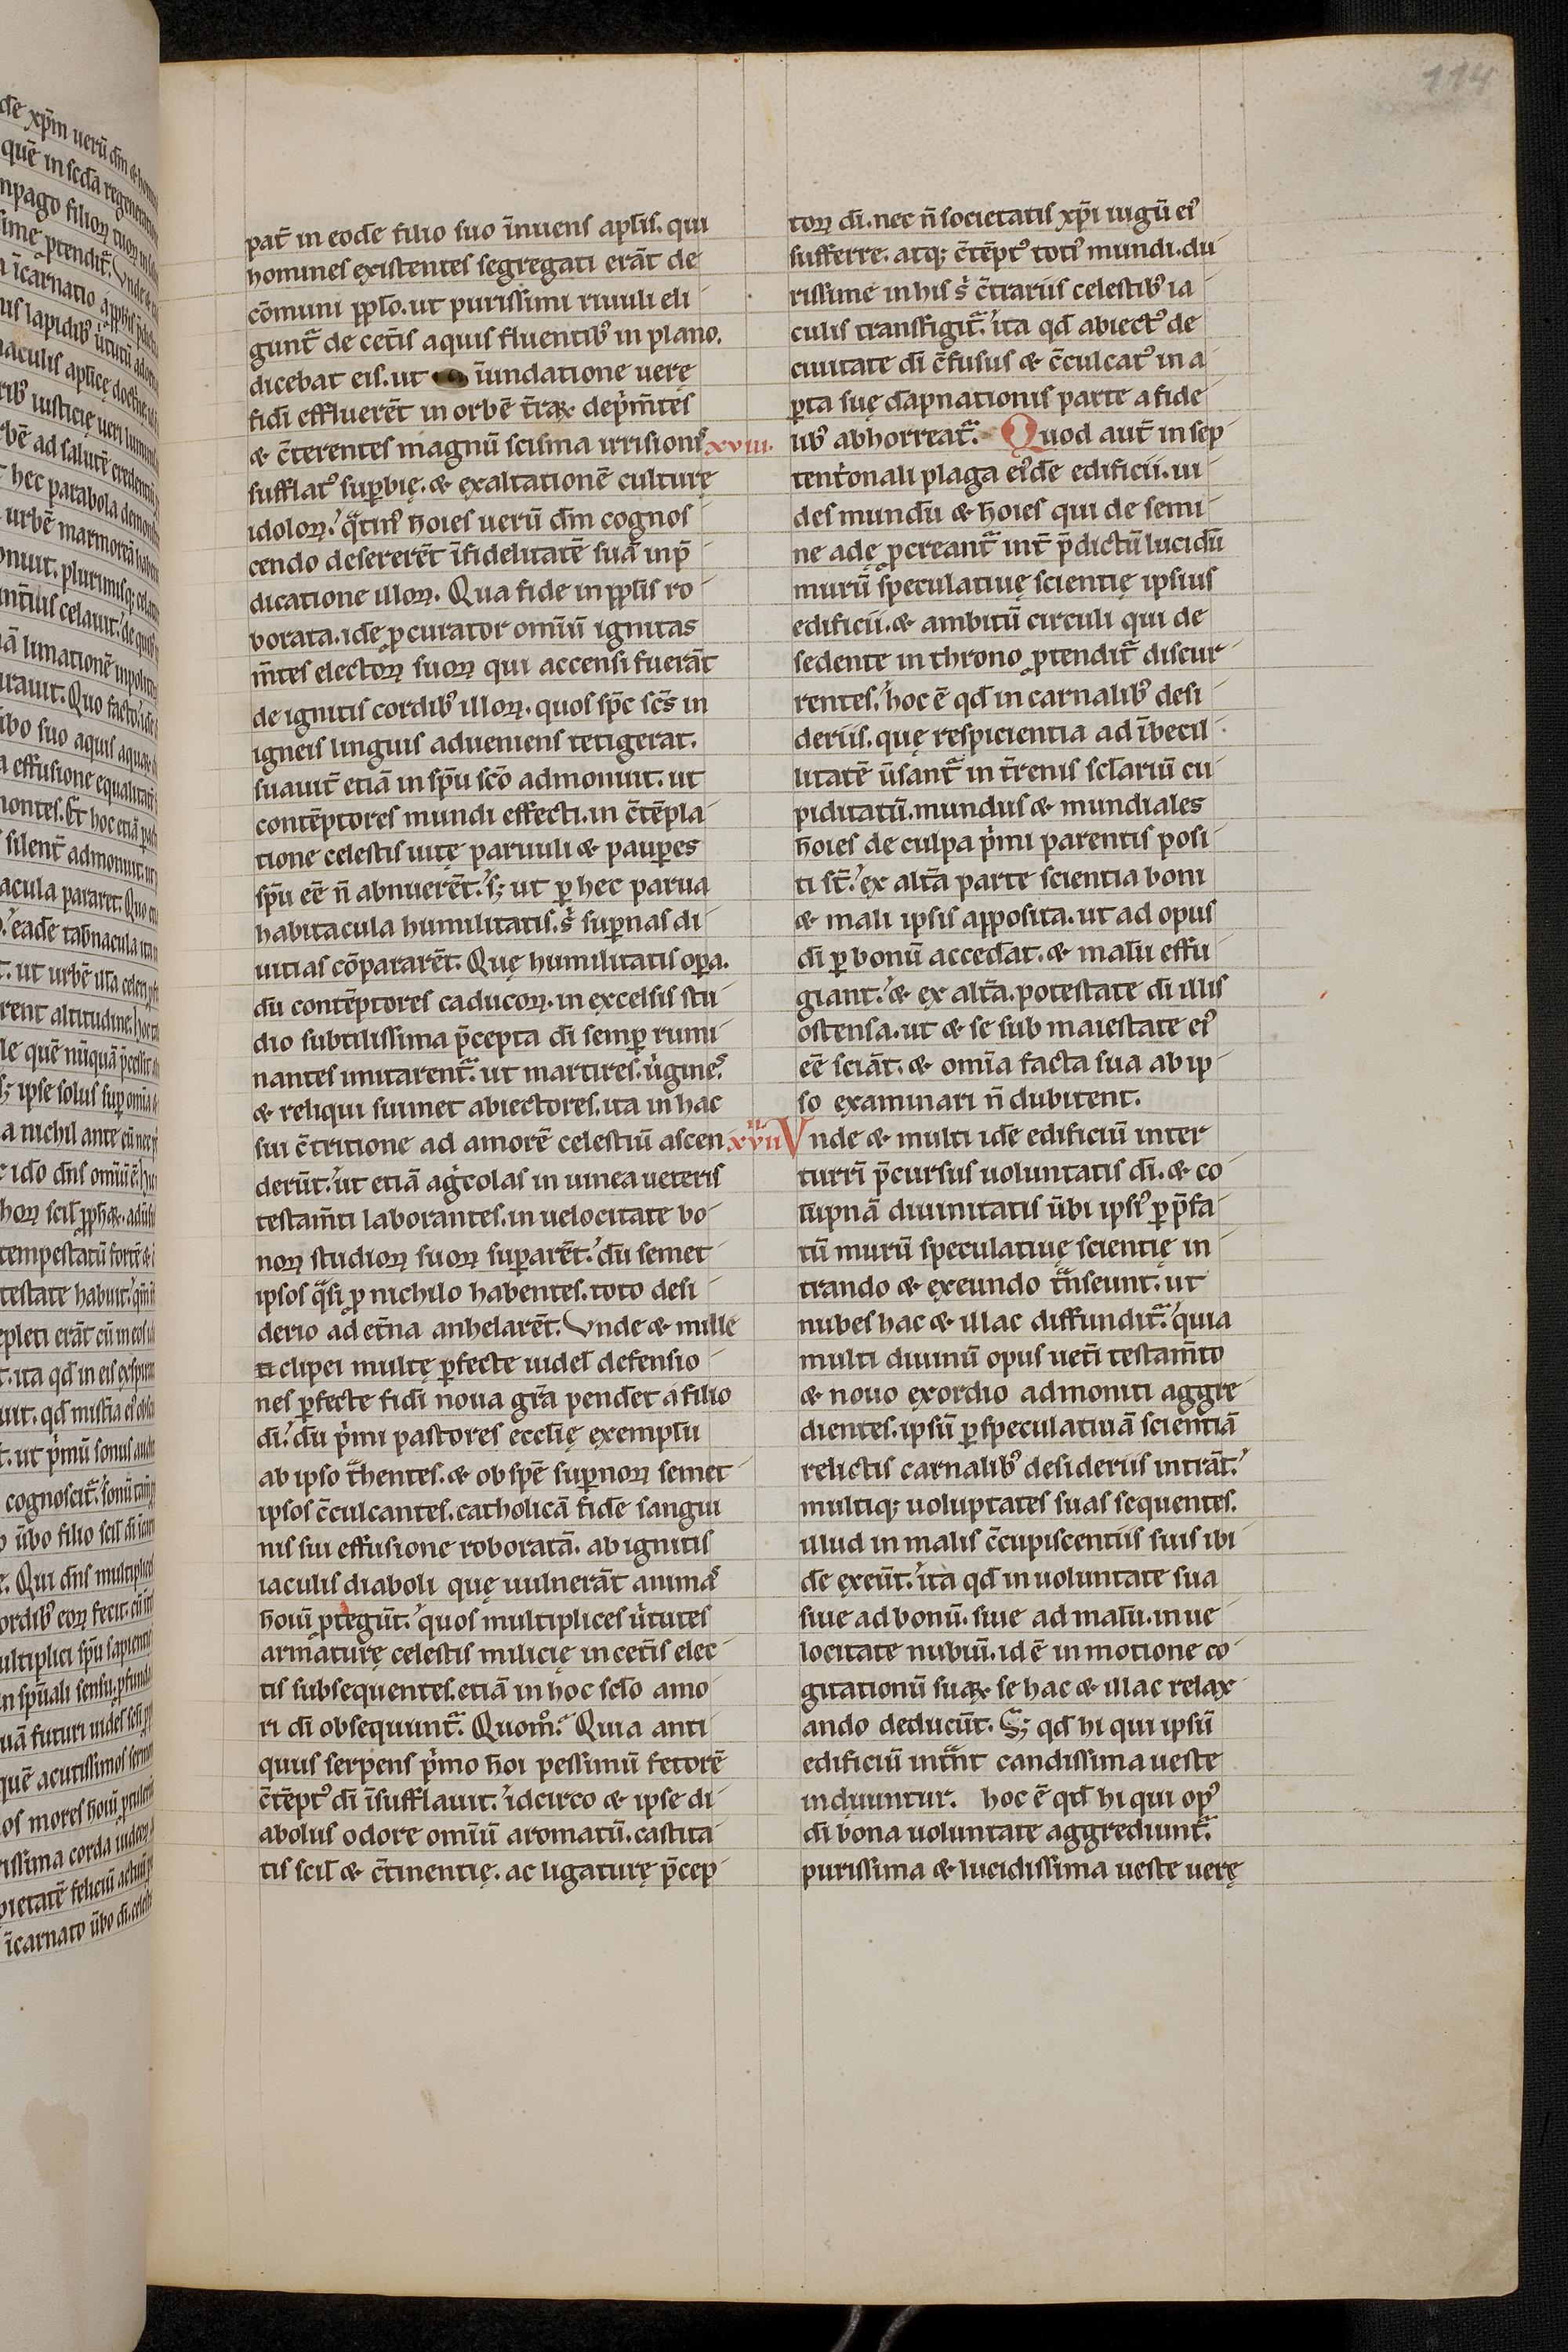 114
pat̄ in eodē filio suo īnuens apl̄is. qui
homines existentes segregati erāt de
cōmuni ppl̄o. ut purissimi riuuli eli
gunt̄ de cet̄is aquis fluentib' in plano.
dicebat eis. ut īundatione uerę
fidi effluerēt in orbē t̄raꝝ dep̄m̄tes
& c̄terentes magnū scisma irrisionis
sufflat' suꝑbię. & exaltationē culturę
idoloꝝ. qͣtin' hoīes uerū dm̄ cognos
cendo desererēt īfidelitatē suā in p̄
dicatione illoꝝ. Qua fide in ppl̄is ro
borata. idē ꝓcurator om̄iū ignitas
m̄tes electoꝝ suoꝝ qui accensi fuerāt
de ignitis cordib' illoꝝ. quos sp̄c sc̄s in
igneis linguis adueniens tetigerat.
suauit̄ etiā in sp̄u sc̄o admonuit. ut
contēptores mundi effecti. in c̄tēpla
tione celestis uitę paruuli & pauꝑes
sp̄u eē n̄ abnuerēt. s; ut ꝑ hec parua
habitacula humilitatis. s̄ suꝑnas di
uitias cōpararēt. Quę humilitatis oꝑa.
dū contēptores caducoꝝ. in excelsis stu
dio subtilissima p̄cepta dī semꝑ rumi
nantes imitarent̄. ut martires. ūgines.
& reliqui suimet abiectores. ita in hac
sui c̄tritione ad amorē celestiū ascen
derūt. ut etiā ag̍colas in uinea ueteris
testam̄ti laborantes. in uelocitate bo
noꝝ studioꝝ suoꝝ suꝑarēt. dū semet
ipsos qͣsi ꝓ nichilo habentes. toto desi
derio ad et̄na anhelarēt. Vnde & mille
clipei multę ꝑfecte uidel̄ defensio
nes ꝑfecte fidī noua gr̄a pendet a filio
dī. dū p̍mi pastores eccl̄ię exemplū
ab ipso t̄hentes. & ob spē suꝑnoꝝ semet
ipsos c̄culcantes. catholicā fidē sangui
nis sui effusione roboratā. ab ignitis
iaculis diaboli quę uulnerāt animas
hoīuꝫ ꝓtegūt. quos multiplices ūtutes
armaturę celestis milicię in cet̄is elec
tis subsequentes. etiā in hoc scl̄o amo
ri dī obsequunt̄. Quom̊. Quia anti
quus serpens p̍mo hoī pessimū fetorē
c̄tēpt' dī īsufflauit. idcirco & ipse di
abolus odore om̄iū aromatū. castita
tis scil̄ & c̄tinentię. ac ligaturę p̄cep
toꝝ dī. nec n̄ societatis xp̄i iugū ei'
sufferre. atq; c̄tēpt' toti' mundi. du
rissime in his s̄ c̄trariis celestib' ia
culis transfigit̄. ita qd̄ abiect' de
ciuitate dī c̄fusus & c̄culcat' in a
ꝑta suę dāpnationis parte a fide
lib' abhorreat̄. Quod aut̄ in sep
xviii.
tent̍onali plaga ei'dē edificii. ui
des mundū & hoīes qui de semi
ne adę ꝓcreant̄ int̄ p̄dictū lucidū
murū speculatiuę scientię ipsius
edificii. & ambitū circuli qui de
sedente in throno ꝓtendit̄ discur
rentes. hoc ē qd̄ in carnalib' desi
deriis. quę respicientia ad ībecil
litatē ūsant̄ in t̄renis scl̄ariū cu
piditatū. mundus & mundiales
hoīes de culpa p̍mi parentis posi
ti st̄. ex alt̄a parte scientia boni
& mali ipsis apposita. ut ad opus
dī ꝑ bonū accedāt. & malū effu
giant. & ex alt̄a. potestate dī illis
ostensa. ut & se sub maiestate ei'
eē sciāt. & om̄ia facta sua ab ip
so examinari n̄ dubitent.
xviiii Vnde & multi idē edificiū inter
turrī p̄cursus uoluntatis dī. & co
lūpnā diuinitatis ūbi ipsi' ꝑ p̄fa
tū murū speculatiuę scientię in
trando & exeundo t̄nseunt. ut
nubes hac & illac diffundit̄. quia
multi diuinū opus uet̄i testam̄to
& nouo exordio admoniti aggre
dientes. ipsū ꝑ speculatiuā scientiā
relictis carnalib' desideriis intrāt.
multiq; uoluptates suas sequentes.
illud in malis c̄cupiscentiis suis ibi
dē exeūt. ita qd̄ in uoluntate sua
siue ad bonū. siue ad malū. in ue
locitate nubiū. id ē in motione co
gitationū suaꝝ se hac & illac relax
ando deducūt. S; qd̄ hi qui ipsū
edificiū int̄nt candissima ueste
induuntur. hoc ē qd̄ hi qui op'
dī bona uoluntate aggrediunt̄.
purissima & lucidissima ueste uerę